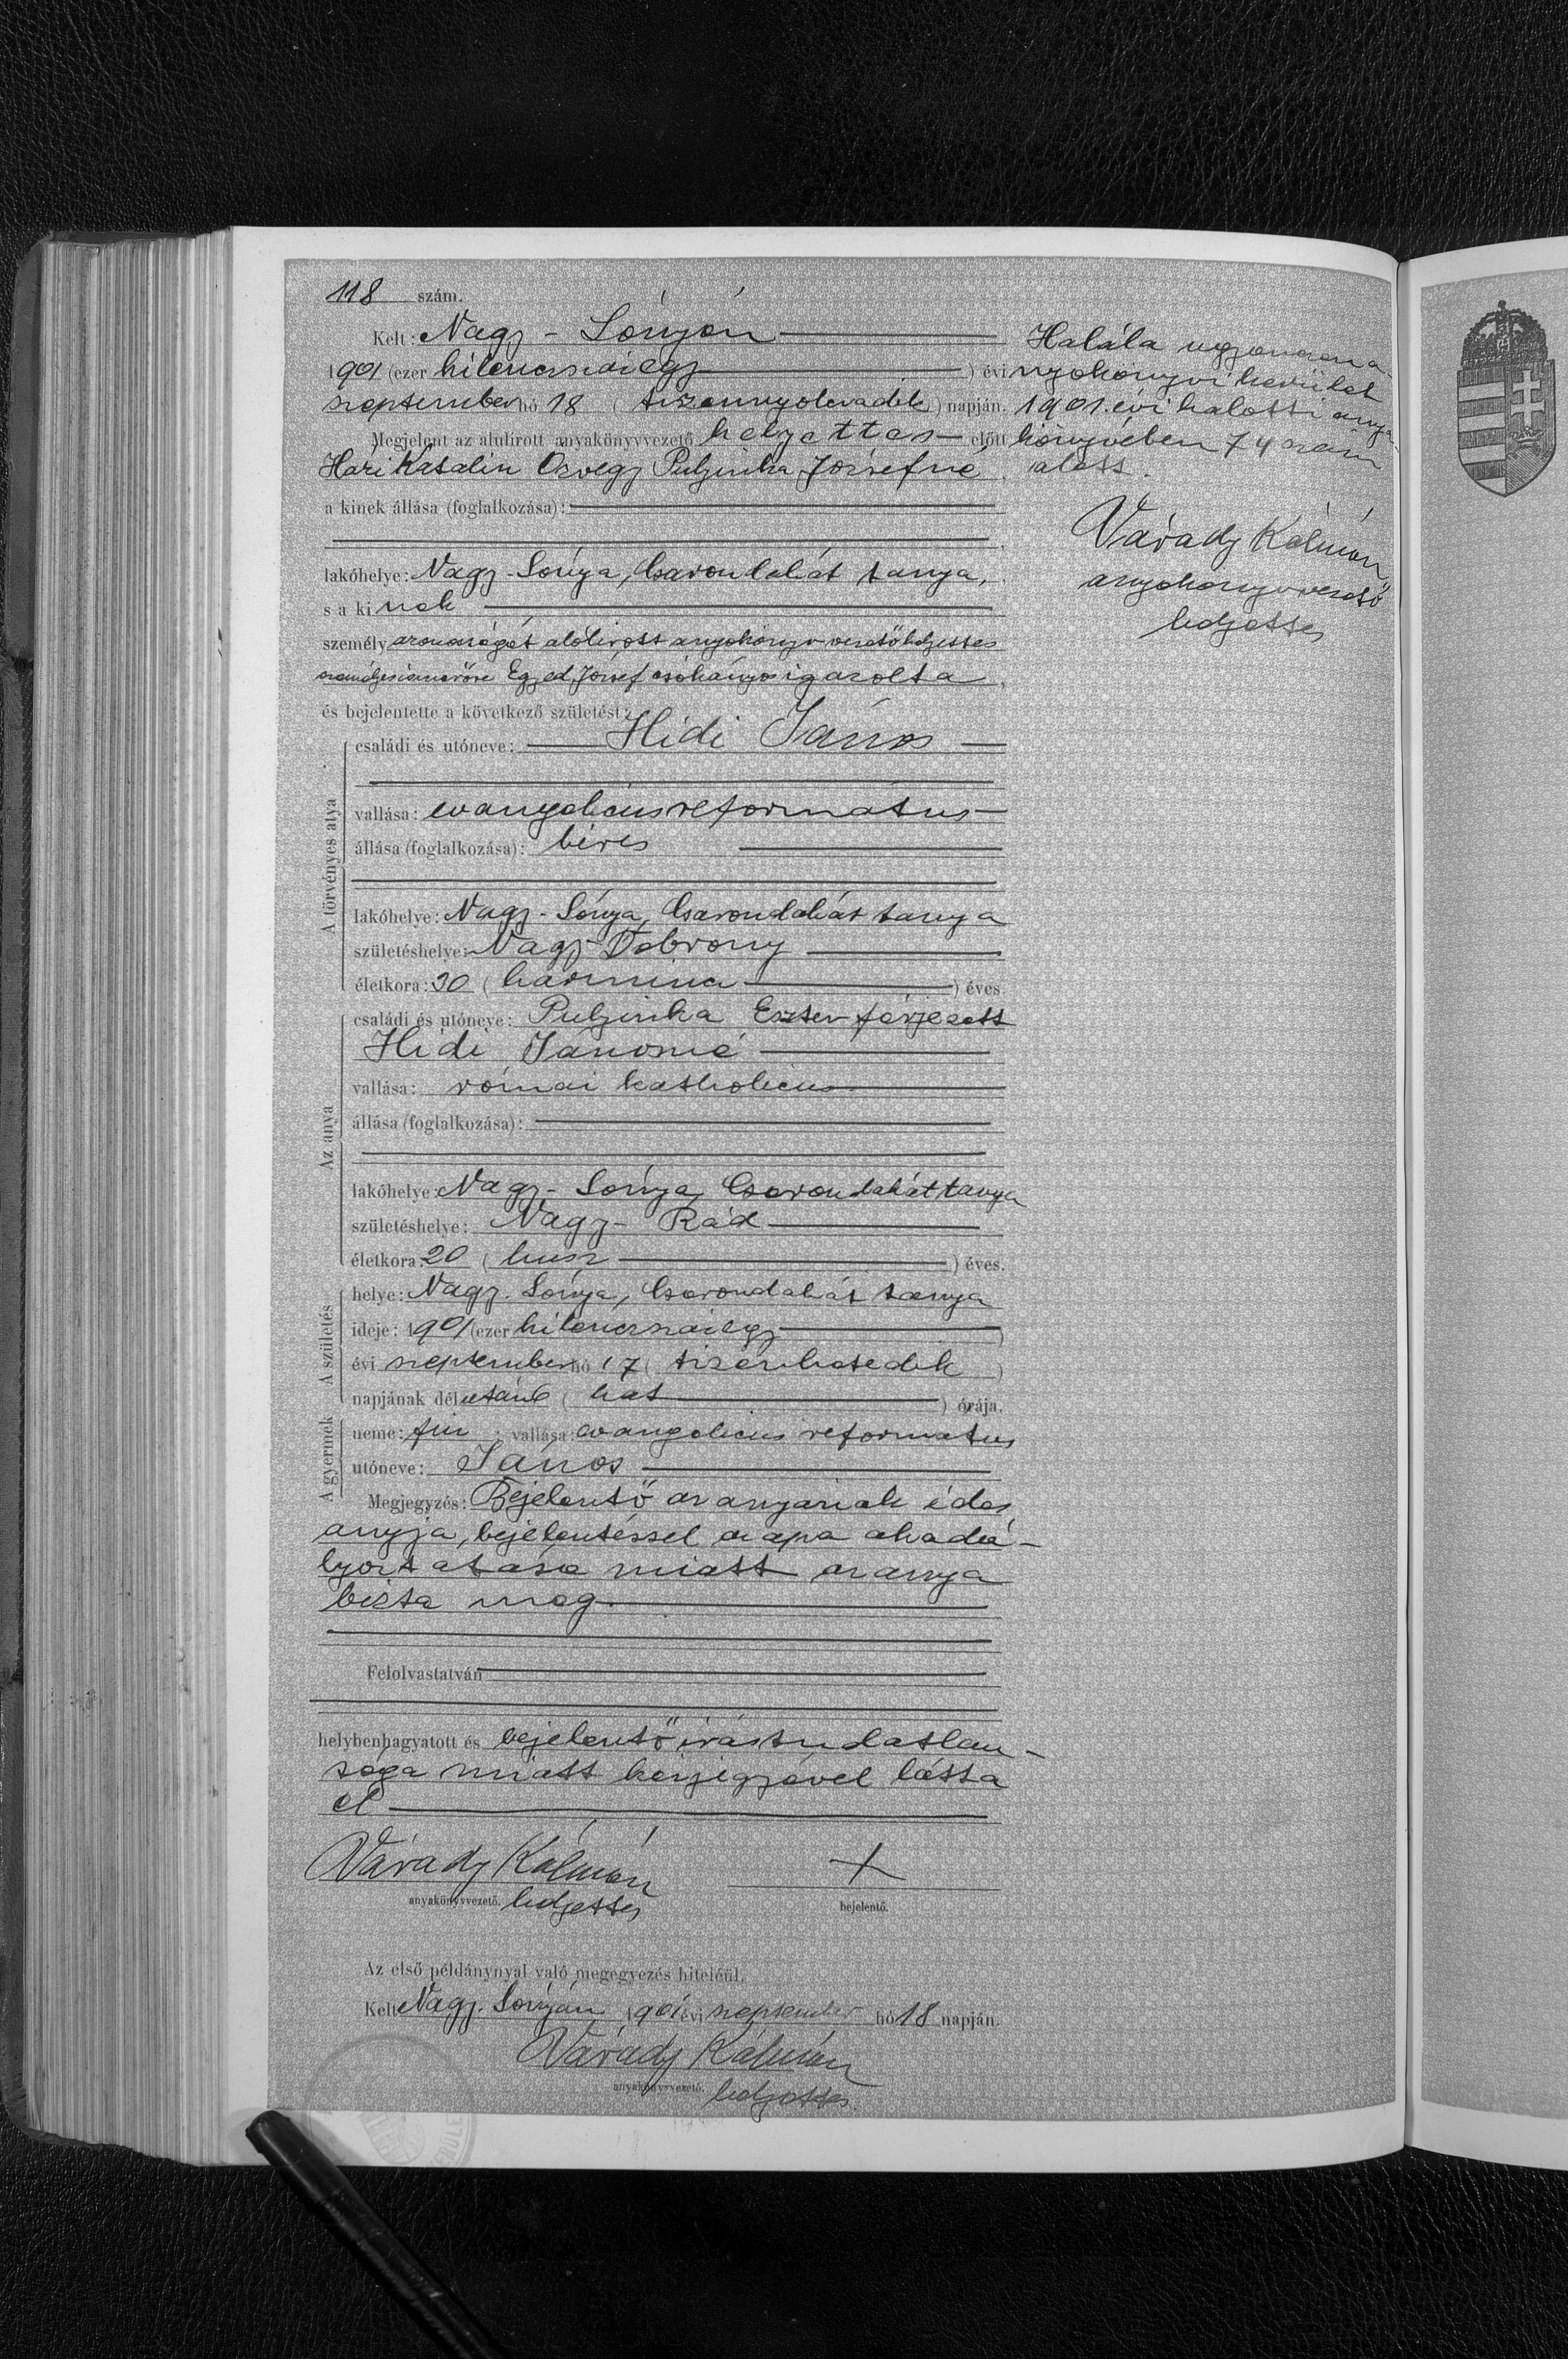 118 szám.
Kelt: Nagy-Lónyán
1901 (ezer kilenczszázegy) évi
szeptember hó 18 (tizennyolczadik) napján.
Megjelent az alulirott anyakönyvvezető helyettes előtt
Hári Katalin Özvegy Pulyinka Józsefné,
a kinek állása (foglalkozása):
lakóhelye: Nagy-Lónya, Csarondahát tanya,
s a kinek
személyazonosságát alólirott anyakönyvvezető helyettes
személyes ismerőse Egyed József csohányos igazolta,
és bejelentette a következő születést:
A törvényes atya
családi és utóneve: Hidi János
vallása: evangelicus református
állása (foglalkozása): béres
lakóhelye: Nagy-Lónya, Csarondahát tanya
születéshelye: Nagy-Dobrony
életkora: 30 (harmincz) éves.
Az anya
családi és utóneve: Pulyinka Eszter férjezett
Hidi Jánosné
vallása: római katholicus
állása (foglalkozása):
lakóhelye: Nagy-Lónya, Csarondahát tanya
születéshelye: Nagy-Rád
életkora: 20 (husz) éves.
A születés
helye: Nagy-Lónya, Csarondahát tanya
ideje: 1901 (ezer kilenczszázegy)
évi szeptember hó 17 (tizenhetedik)
napjának délután 6 (hat) órája.
A gyermek
neme: fiu; vallása: evangelicus reformatus
utóneve: János
Megjegyzés: Bejelentő az anyának édes
anyja, bejelentéssel az apa akadá-
lyoztatása miatt az anya
bizta meg.
Felolvastatván
helybenhagyatott és bejelentő irástudatlan-
sága miatt kézjegyével látta
el
Várady Kálmán +
anyakönyvvezető. helyettes bejelentő.
Az első példánynyal való megegyezés hiteléül.
Kelt Nagy-Lónyán 1901 évi szeptember hó 18 napján.
Várady Kálmán
anyakönyvvezető. helyettes.
Halála ugyanezen a-
nyakönyvi kerület
1901. évi halotti anya-
könyvében 74 szám
alatt.
Várady Kálmán
anyakönyvvezető
helyettes